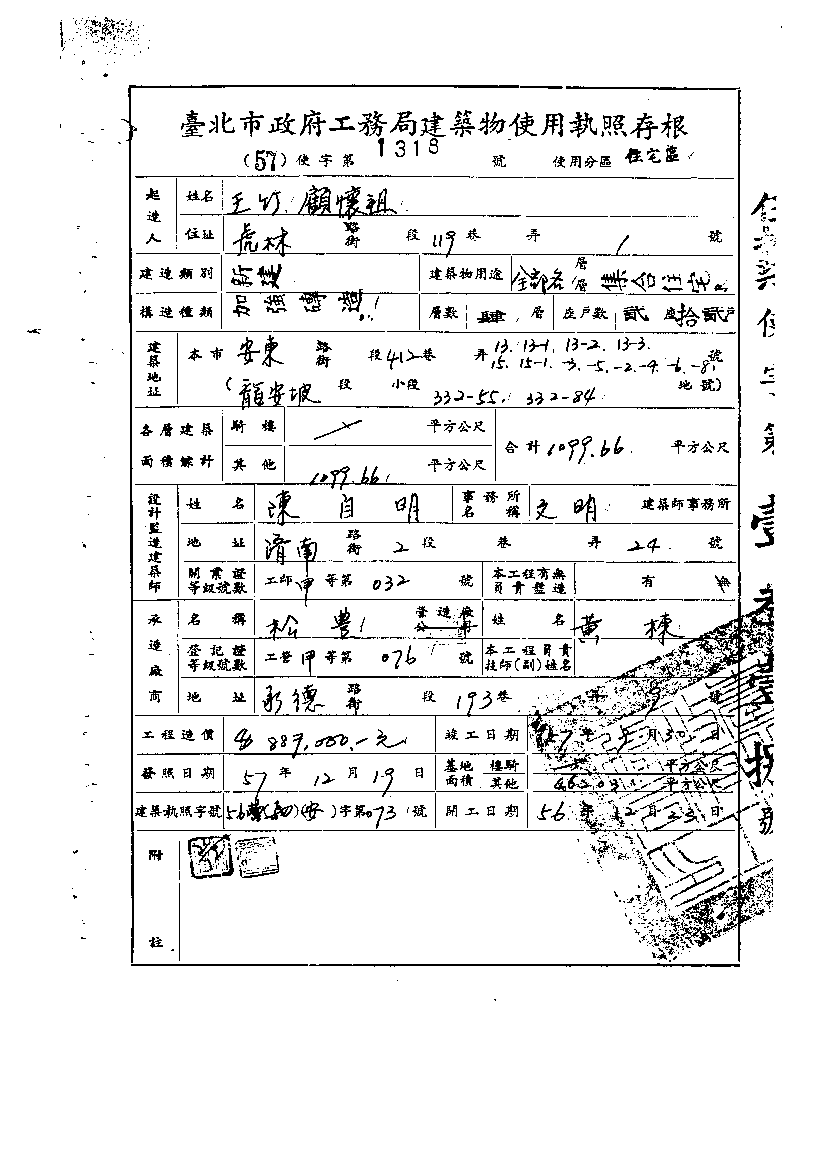 臺北市政府工務局建築物使用執照存根
(57) 使字第 1318 號 使用分區 住宅區
起造人 姓名 王竹 顧懷祖
住址 虎林 路街 段 119 巷 弄 1 號
建造類別 新建 建築物用途 全部各層層 集合住宅
構造種類 加強磚造 層數 肆 層 座戶數 貳 座 拾貳戶
建築地址 本市 安東 路街 段 412 巷 弄 13. 13-1. 13-2. 13-3. 15. 15-1. -3. -5. -2. -4. -6. -8. 號
(龍安坡 段 小段 332-55. 332-84 地號)
各層建築面積總計 騎樓 平方公尺 合計 1099.66 平方公尺
其他 1099.66 平方公尺
設計監造建築師 姓名 陳自明 事務所名稱 文明 建築師事務所
地址 濟南 路街 2 段 巷 弄 24 號
開業證等級號數 工師 甲 等第 032 號 本工程有無負責監造 有 無
承造廠商 名稱 松豊 營造廠公司 姓名 黃棟
登記證等級號數 工營 甲 等第 076 號 本工程負責技師(副)姓名
地址 承德 路街 段 193 巷 弄 9 號
工程造價 887,000.-元 竣工日期 57 年 月 30 日
發照日期 57 年 12 月 19 日 基地面積 騎樓 平方公尺
其他 平方公尺
建築執照字號 56 (安)字第 073 號 開工日期 56 年 12 月 23 日
附註